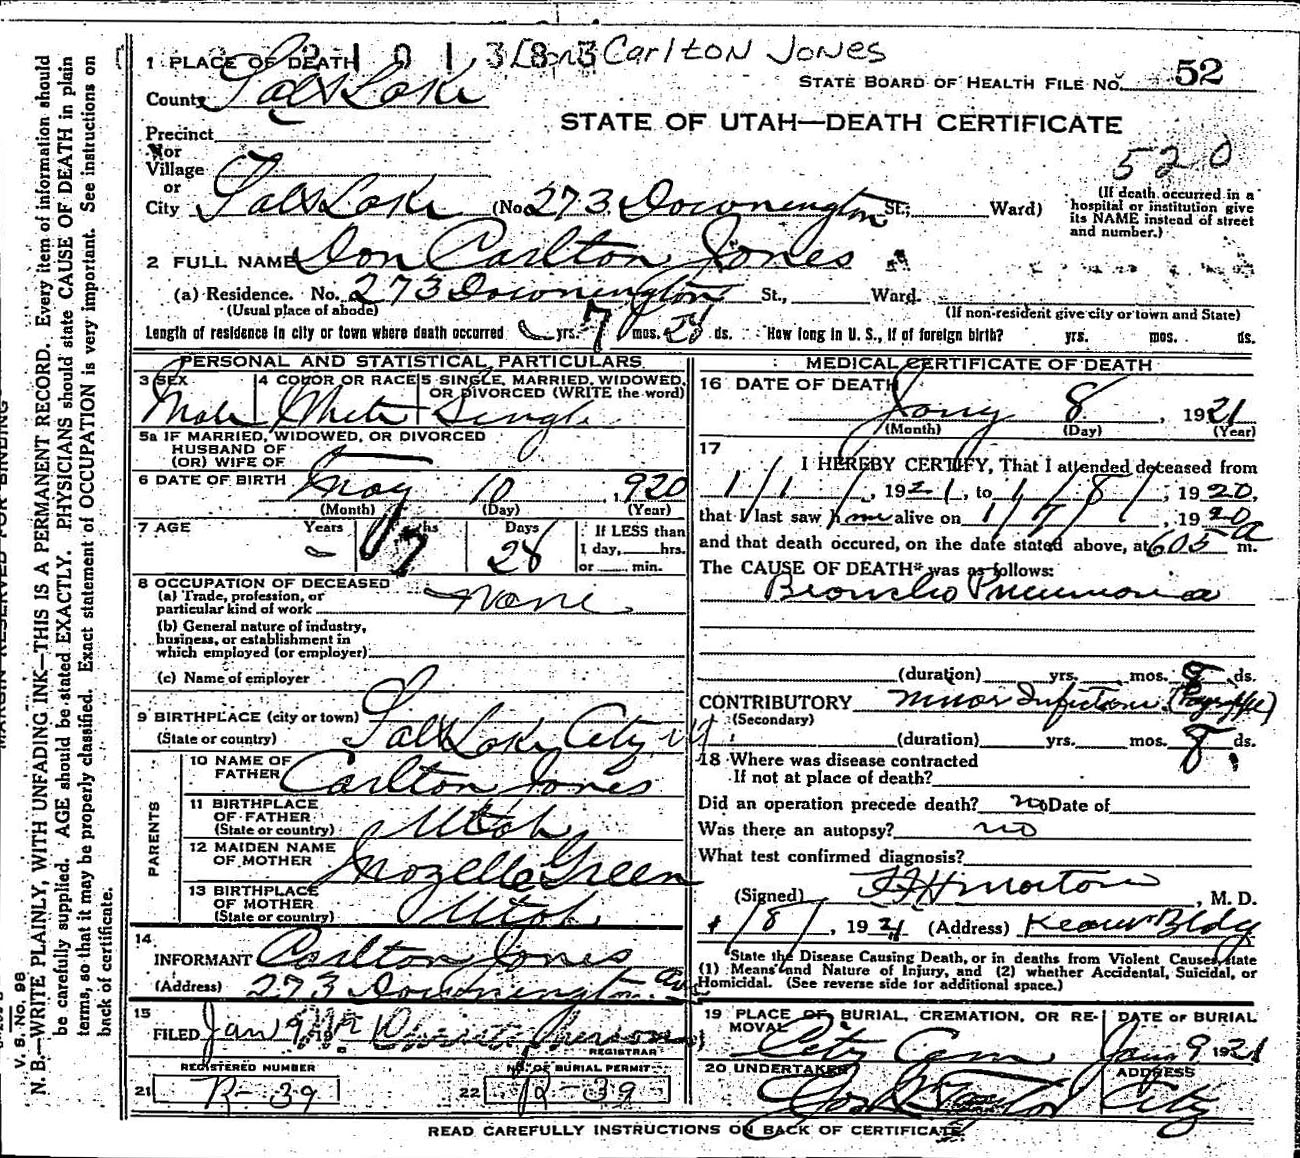 2101383 Don Carlton Jones
1 PLACE OF DEATH
STATE BOARD OF HEALTH FILE NO. 52
County Salt Lake
STATE OF UTAH—DEATH CERTIFICATE
Precinct
or
Village
520
or
City Salt Lake (No. 273 Downington St.; Ward)
(If death occurred in a hospital or institution give its NAME instead of street and number.)
2 FULL NAME Don Carlton Jones
(a) Residence. No. 273 Downington St., Ward.
(Usual place of abode) (If non-resident give city or town and State)
Length of residence in city or town where death occurred yrs. 7 mos. 28 ds. How long in U. S., if of foreign birth? yrs. mos. ds.
PERSONAL AND STATISTICAL PARTICULARS
3 SEX 4 COLOR OR RACE 5 SINGLE, MARRIED, WIDOWED, OR DIVORCED (WRITE the word)
Male White Single
5a IF MARRIED, WIDOWED, OR DIVORCED
HUSBAND OF
(OR) WIFE OF
6 DATE OF BIRTH May 10, 1920
(Month) (Day) (Year)
7 AGE Years Months Days If LESS than
- 7 28 1 day, hrs.
or min.
8 OCCUPATION OF DECEASED
(a) Trade, profession, or
particular kind of work None
(b) General nature of industry,
business, or establishment in
which employed (or employer)
(c) Name of employer
9 BIRTHPLACE (city or town) Salt Lake City
(State or country)
PARENTS
10 NAME OF FATHER Carlton Jones
11 BIRTHPLACE OF FATHER (State or country) Utah
12 MAIDEN NAME OF MOTHER Mozelle Green
13 BIRTHPLACE OF MOTHER (State or country) Utah
14
INFORMANT Carlton Jones
(Address) 273 Downington Av
15
FILED Jan 9
REGISTRAR
REGISTERED NUMBER NO. OF BURIAL PERMIT
21 R-39 22 R-39
MEDICAL CERTIFICATE OF DEATH
16 DATE OF DEATH
Jany 8, 1921
(Month) (Day) (Year)
17
I HEREBY CERTIFY, That I attended deceased from
1/1/, 1921, to 1/8/, 1920,
that I last saw him alive on 1/7/, 1920
and that death occured, on the date stated above, at 605 a m.
The CAUSE OF DEATH* was as follows:
Broncho Pneumonia
(duration) yrs. mos. 8 ds.
CONTRIBUTORY Minor Infection
(Secondary)
(duration) yrs. mos. 8 ds.
18 Where was disease contracted
If not at place of death?
Did an operation precede death? no Date of
Was there an autopsy? no
What test confirmed diagnosis?
(Signed) Morton, M. D.
1/8/, 1921 (Address) Bldg
*State the Disease Causing Death, or in deaths from Violent Causes, state
(1) Means and Nature of Injury, and (2) whether Accidental, Suicidal, or
Homicidal. (See reverse side for additional space.)
19 PLACE OF BURIAL, CREMATION, OR REMOVAL DATE OF BURIAL
City Cem Jany 9 1921
20 UNDERTAKER ADDRESS
Taylor City
READ CAREFULLY INSTRUCTIONS ON BACK OF CERTIFICATE
MARGIN RESERVED FOR BINDING
V. S. No. 98
N. B.—WRITE PLAINLY, WITH UNFADING INK—THIS IS A PERMANENT RECORD. Every item of information should
be carefully supplied. AGE should be stated EXACTLY. PHYSICIANS should state CAUSE OF DEATH in plain
terms, so that it may be properly classified. Exact statement of OCCUPATION is very important. See instructions on
back of certificate.